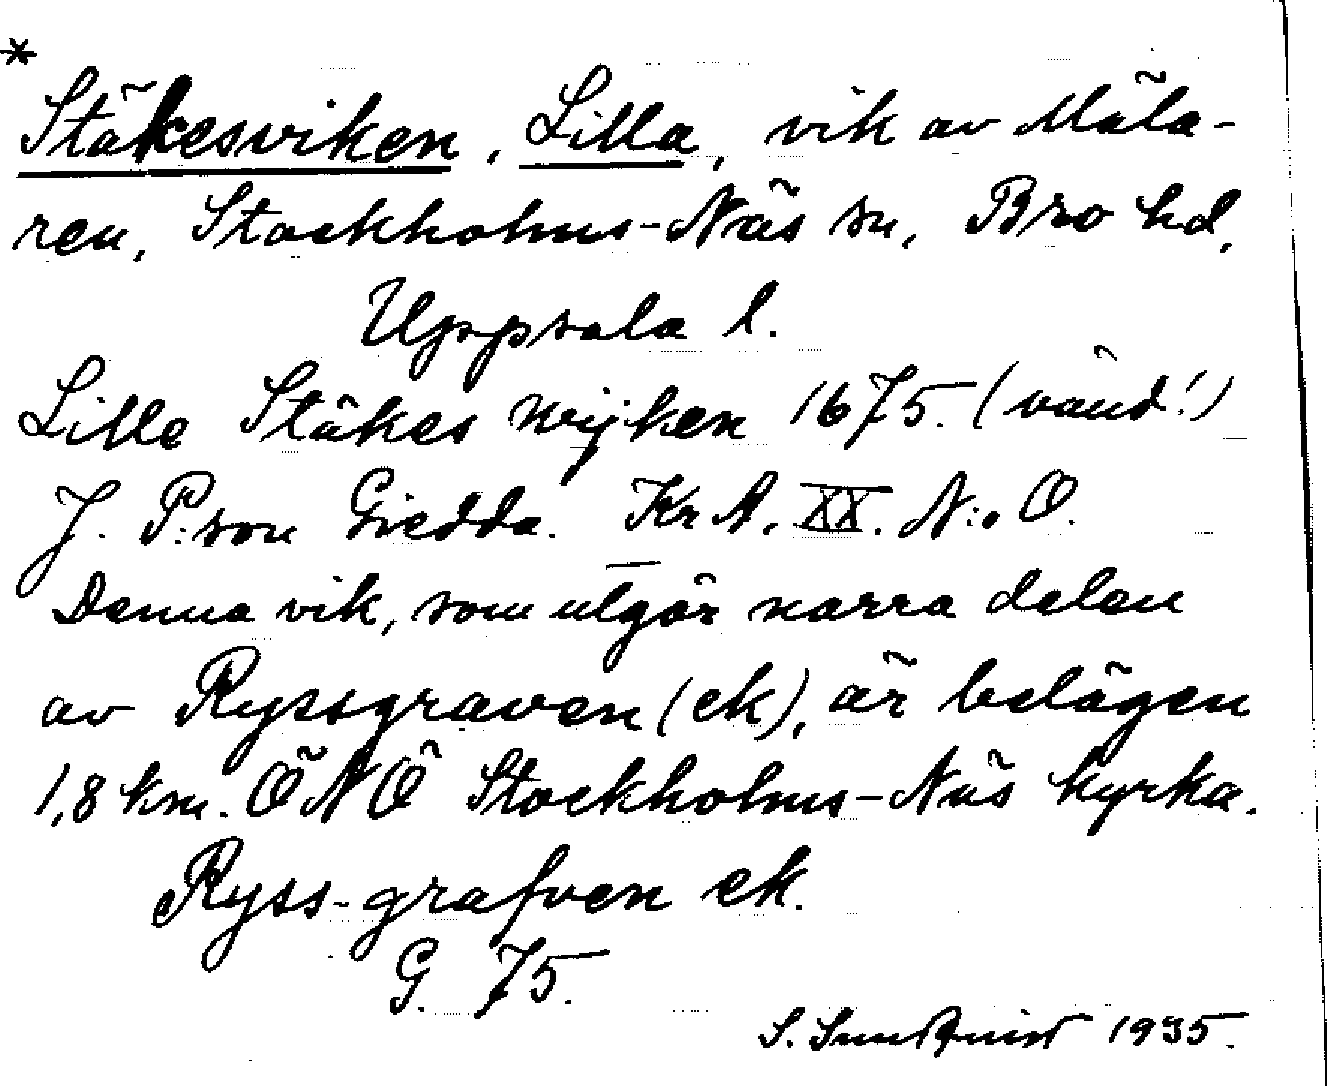 *
Stäkesviken, Lilla, vik av Mäla-
ren, Stockholms-Näs sn, Bro hd,
Uppsala l.
Lille Stäkes wijken 1675. (vänd!)
J. P:son Giedda. Kr A. XX. N:o O.
Denna vik, som utgör norra delen
av Ryssgraven (ek), är belägen
1,8 km. ÖNÖ Stockholms-Näs kyrka.
Ryss-grafven ek.
G. 75.
S. 1935.